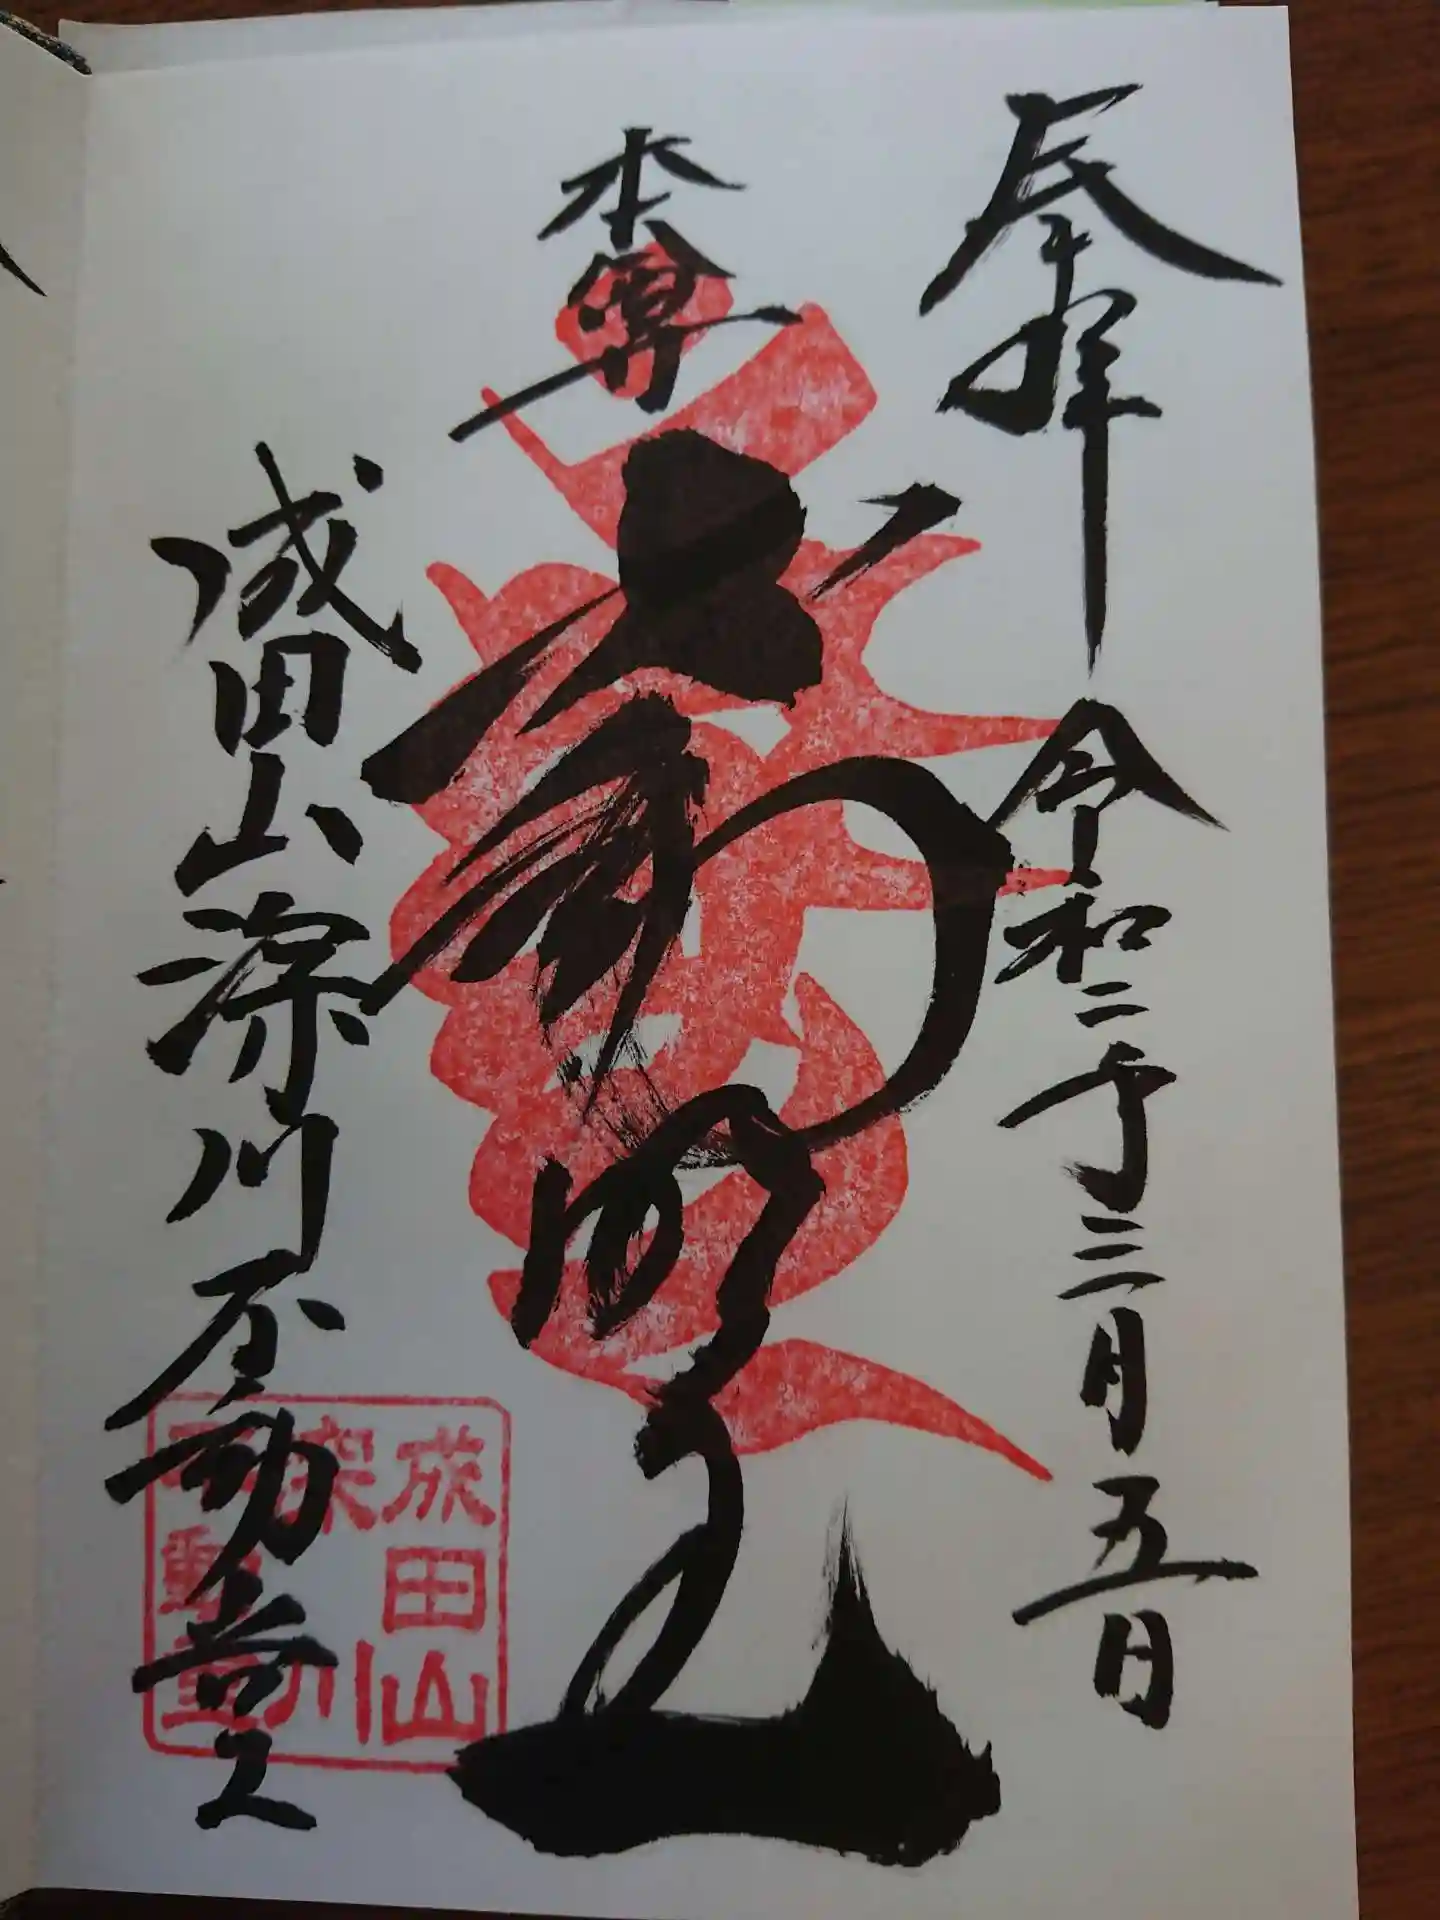 奉拝
令和二年三月五日
本尊
不動明王
成田山深川不動堂
成田山
深川
不動